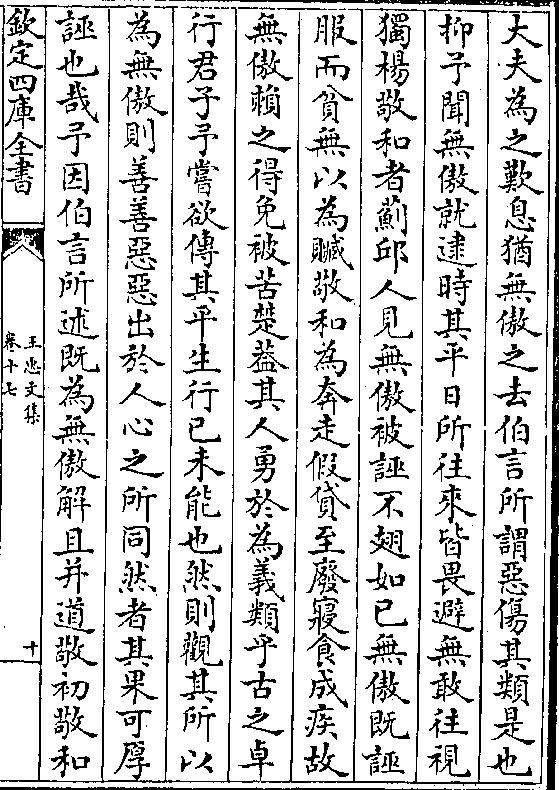 大夫為之歎息猶無傲之去伯言所謂惡傷其類是也
抑予聞無傲就逮時其平日所往來皆畏避無敢往視
獨楊敬和者薊邱人見無傲被誣不翅如已無傲既誣
服而貧無以為贓敬和為奔走假貸至廢寢食成疾故
無傲賴之得免被苦楚葢其人勇於為義類乎古之卓
行君子予嘗欲傳其平生行已未能也然則觀其所以
為無傲則善善惡惡出於人心之所同然者其果可厚
誣也哉予因伯言所述既為無傲解且并道敬初敬和
欽定四庫全書
王忠文集
卷十七
十